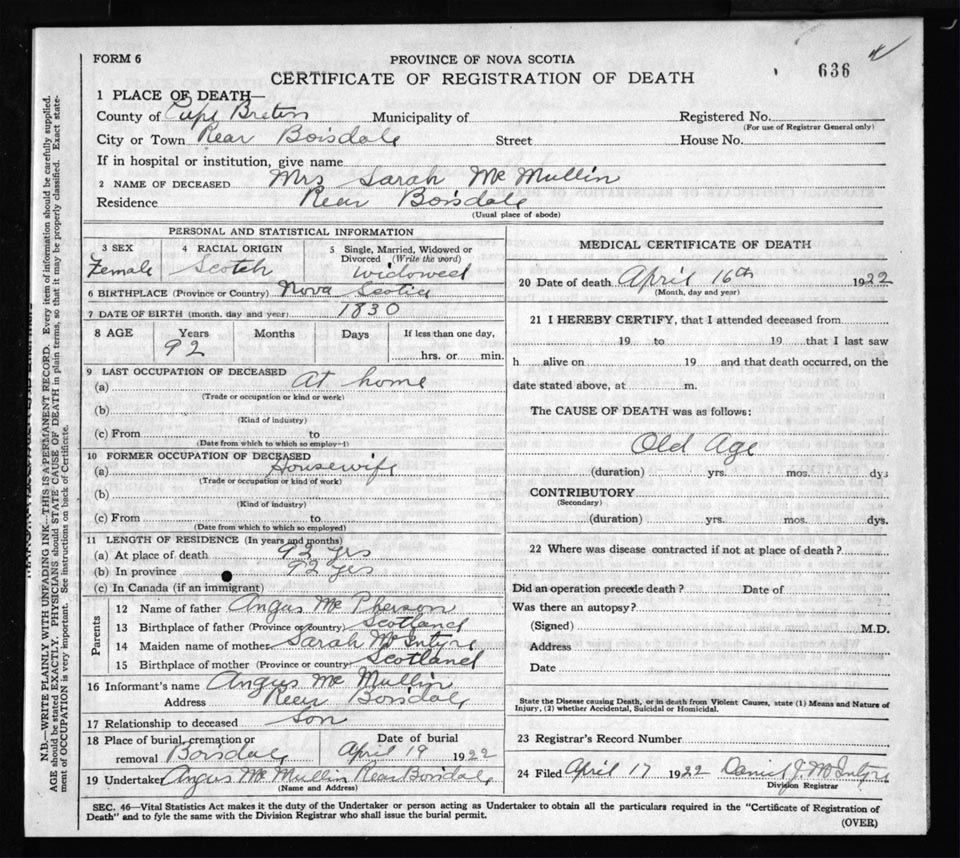 FORM 6
PROVINCE OF NOVA SCOTIA
CERTIFICATE OF REGISTRATION OF DEATH
636
1 PLACE OF DEATH—
County of Cape Breton Municipality of Registered No.
(For use of Registrar General only)
City or Town Rear Boisdale Street House No.
If in hospital or institution, give name
2 NAME OF DECEASED Mrs Sarah Mc Mullin
Residence Rear Boisdale
(Usual place of abode)
PERSONAL AND STATISTICAL INFORMATION
3 SEX
Female
4 RACIAL ORIGIN
Scotch
5 Single, Married, Widowed or
Divorced (Write the word)
Widowed
6 BIRTHPLACE (Province or Country) Nova Scotia
7 DATE OF BIRTH (month, day and year) 1830
8 AGE Years Months Days If less than one day,
92 hrs. or min.
9 LAST OCCUPATION OF DECEASED
(a) At home
(Trade or occupation or kind or work)
(b)
(Kind of industry)
(c) From to
(Date from which to which so employ-1)
10 FORMER OCCUPATION OF DECEASED
(a) Housewife
(Trade or occupation or kind of work)
(b)
(Kind of industry)
(c) From to
(Date from which to which so employed)
11 LENGTH OF RESIDENCE (In years and months)
(a) At place of death 92 yrs
(b) In province 92 yrs
(c) In Canada (if an immigrant)
Parents
12 Name of father Angus Mc Pherson
13 Birthplace of father (Province or country) Scotland
14 Maiden name of mother Sarah McIntyre
15 Birthplace of mother (Province or country) Scotland
16 Informant's name Angus Mc Mullin
Address Rear Boisdale
17 Relationship to deceased Son
18 Place of burial, cremation or
removal Boisdale
Date of burial
April 19 1922
19 Undertaker Angus Mc Mullin Rear Boisdale
(Name and Address)
MEDICAL CERTIFICATE OF DEATH
20 Date of death April 16th 1922
(Month, day and year)
21 I HEREBY CERTIFY, that I attended deceased from
19 to 19 that I last saw
h alive on 19 and that death occurred, on the
date stated above, at m.
The CAUSE OF DEATH was as follows:
Old Age
(duration) yrs. mos. dys
CONTRIBUTORY
(Secondary)
(duration) yrs. mos. dys.
22 Where was disease contracted if not at place of death?
Did an operation precede death? Date of
Was there an autopsy?
(Signed) M.D.
Address
Date
State the Disease causing Death, or in death from Violent Causes, state (1) Means and Nature of
Injury, (2) whether Accidental, Suicidal or Homicidal.
23 Registrar's Record Number
24 Filed April 17 1922 Daniel J. McIntyre
Division Registrar
SEC. 46—Vital Statistics Act makes it the duty of the Undertaker or person acting as Undertaker to obtain all the particulars required in the "Certificate of Registration of
Death" and to fyle the same with the Division Registrar who shall issue the burial permit.
(OVER)
N.B.—WRITE PLAINLY WITH UNFADING INK—THIS IS A PERMANENT RECORD. Every item of information should be carefully supplied.
AGE should be stated EXACTLY. PHYSICIANS should STATE CAUSE OF DEATH in plain terms, so that it may be properly classified. Exact state-
ment of OCCUPATION is very important. See instructions on back of Certificate.